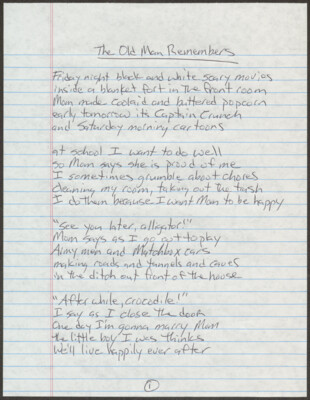 The Old Man Remembers
Friday night black and white scary movies
inside a blanket fort in the front room
Mom made coolaid and buttered popcorn
early tomorrow its Captain Crunch
and Saturday morning cartoons
at school I want to do well
so Mom says she is proud of me
I sometimes grumble about chores
cleaning my room, taking out the trash
I do them because I want Mom to be happy
"See you later, alligator!"
Mom says as I go out to play
Army men and Matchbox cars
making roads and tunnels and caves
in the ditch out front of the house
"After while, crocodile!"
I say as I close the door
One day I'm gonna marry Mom
the little boy I was thinks
We'll live happily ever after
1